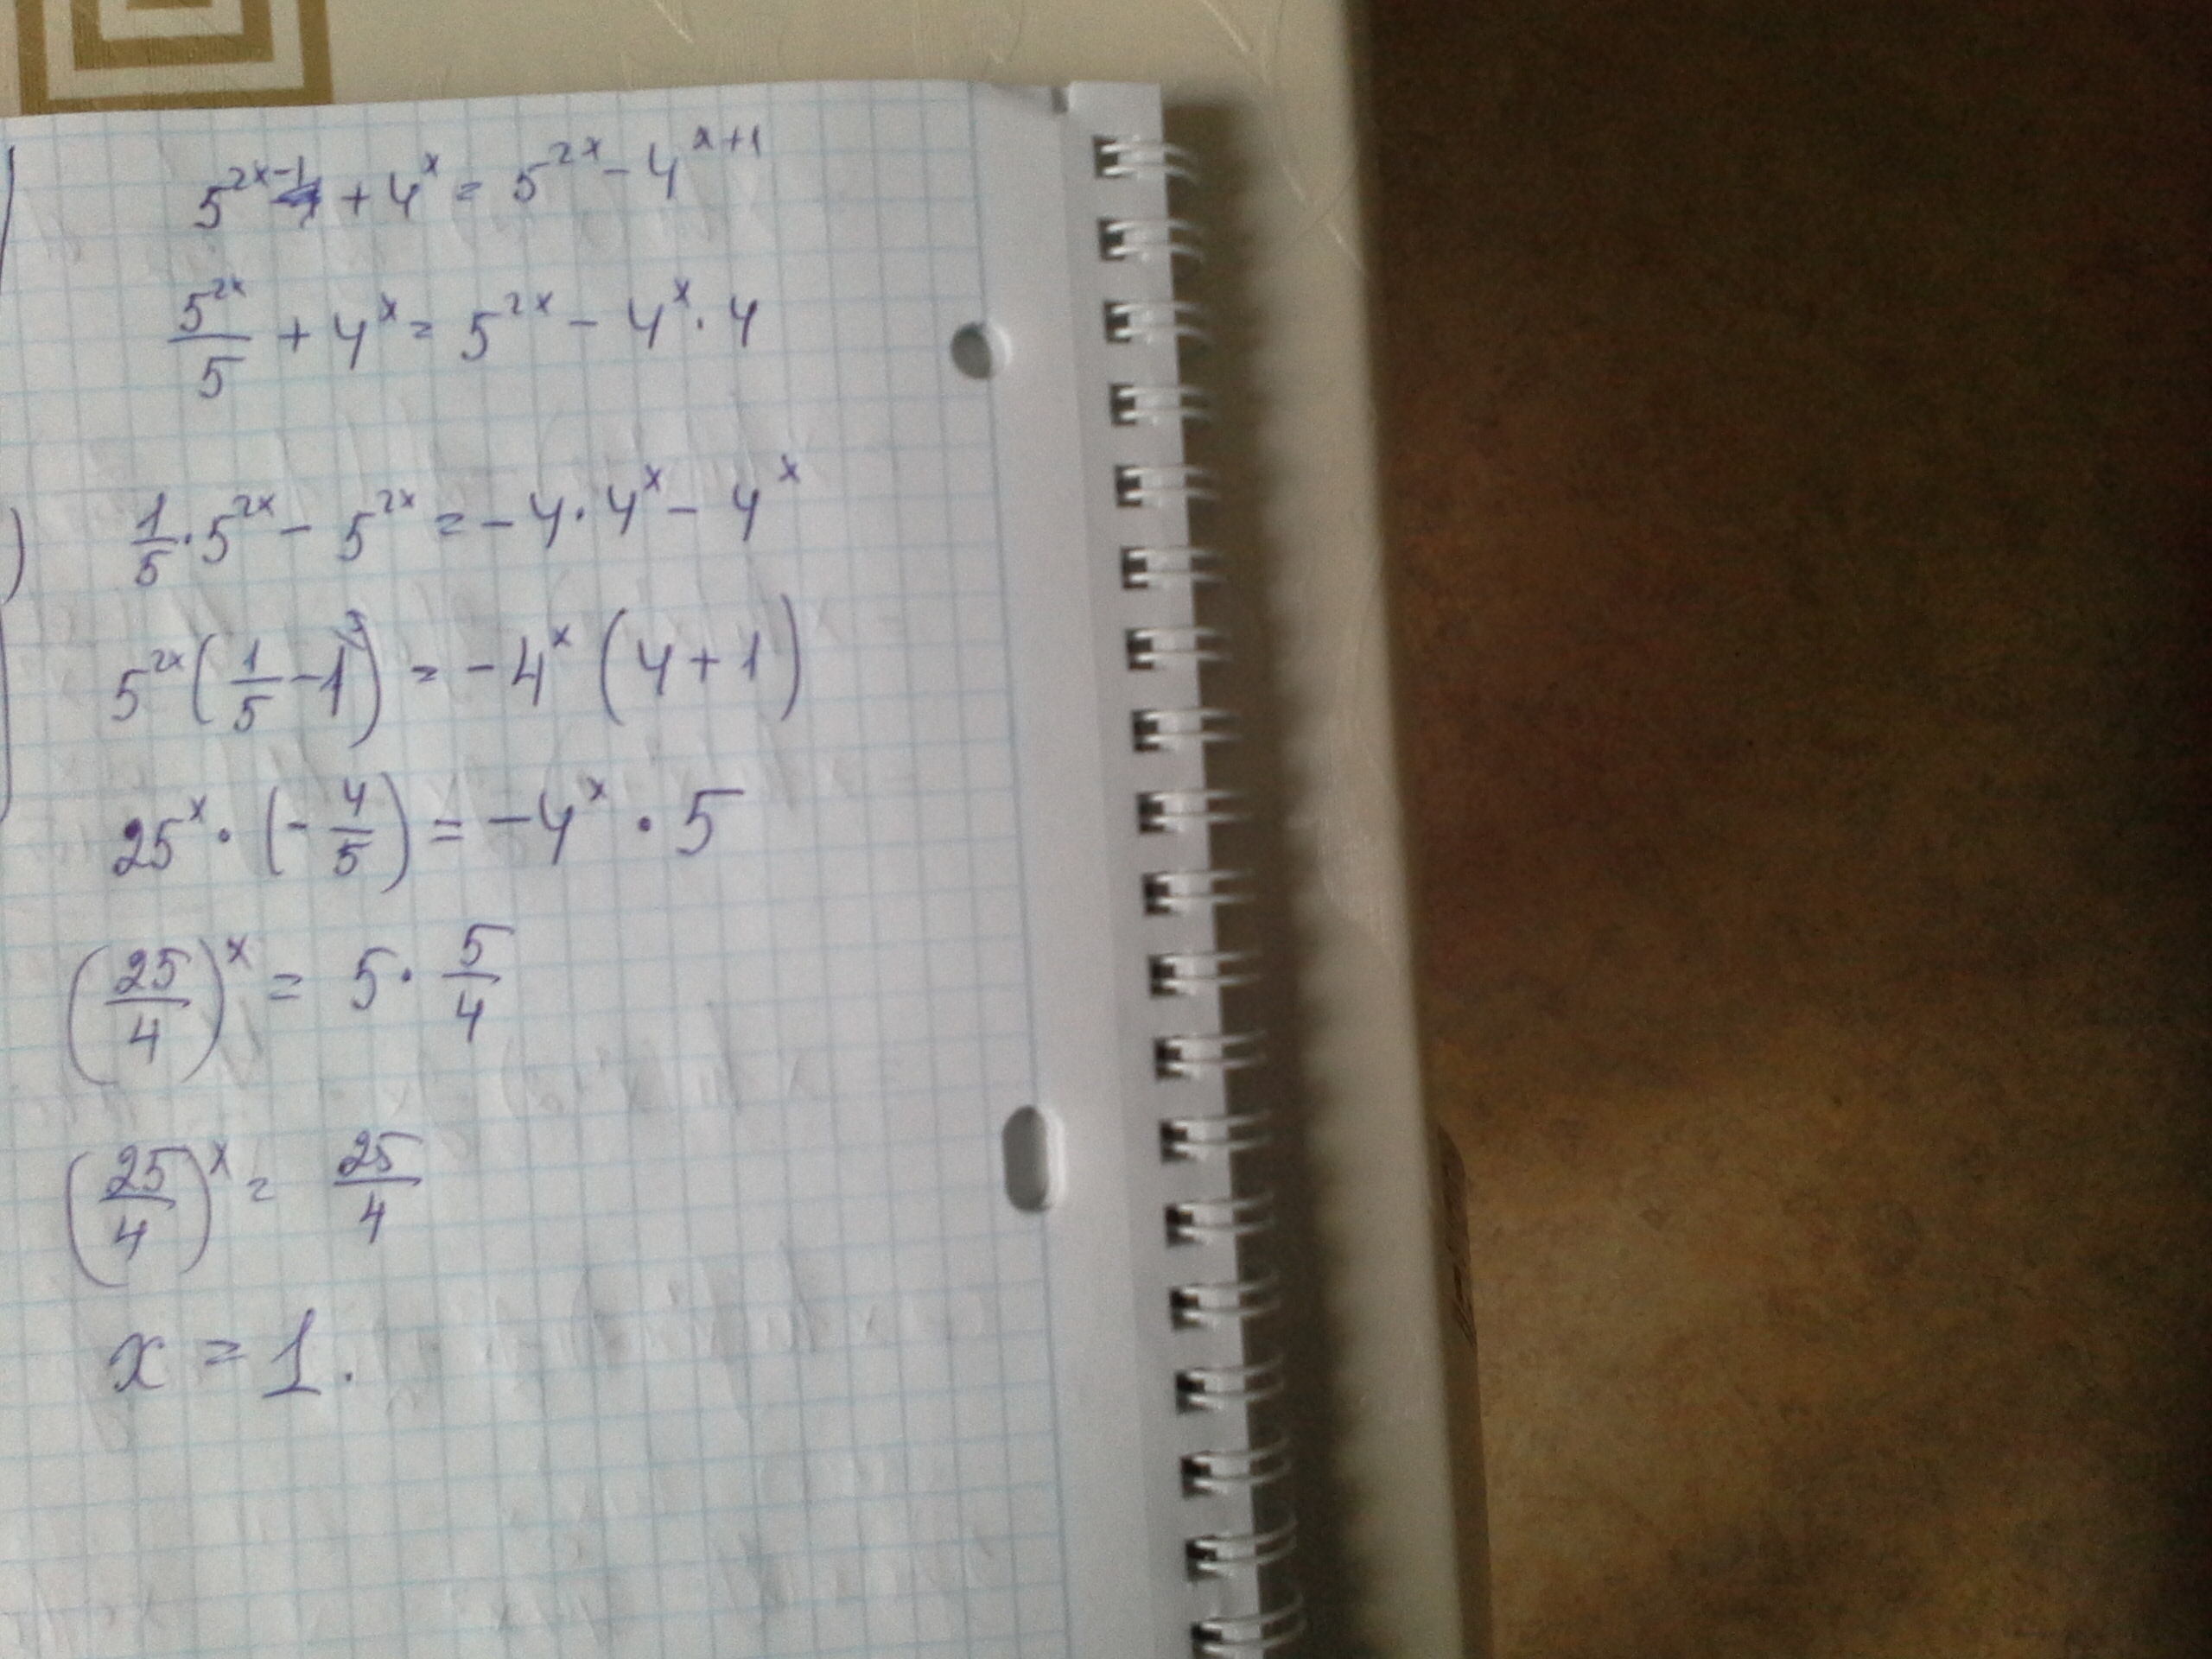 5^{2x-1} + 4^x = 5^{2x} - 4^{x+1}
\frac{5^{2x}}{5} + 4^x = 5^{2x} - 4^x · 4
\frac{1}{5} · 5^{2x} - 5^{2x} = -4 · 4^x - 4^x
5^{2x} (\frac{1}{5} - 1) = -4^x (4 + 1)
25^x · (-\frac{4}{5}) = -4^x · 5
(\frac{25}{4})^x = 5 · \frac{5}{4}
(\frac{25}{4})^x = \frac{25}{4}
x = 1.